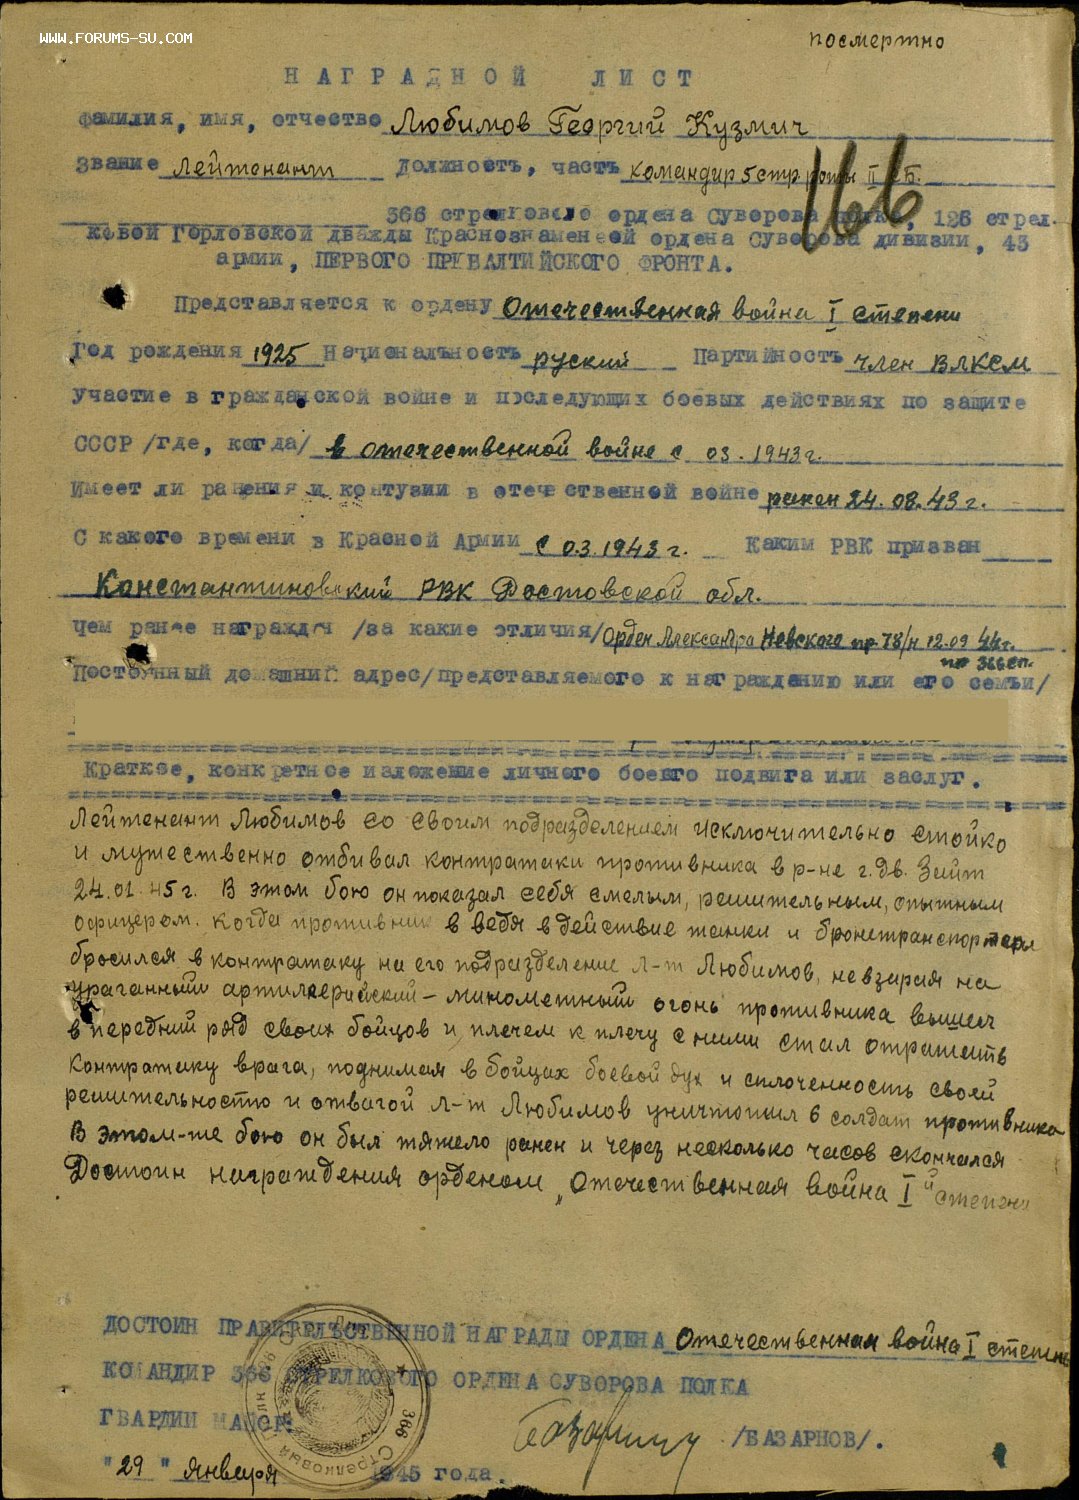 WWW.FORUMS-SU.COM
посмертно
НАГРАДНОЙ ЛИСТ
Фамилия, имя, отчество Любимов Георгий Кузмич
Звание лейтенант Должность, часть командир 5 стр роты II СБ.
166
366 стрелкового ордена Суворова полка, 126 стрел-
ковой Горловской дважды Краснознаменной ордена Суворова дивизии, 43
армии, ПЕРВОГО ПРИБАЛТИЙСКОГО ФРОНТА.
Представляется к ордену Отечественная война I степени
Год рождения 1925 Национальность руский Партийность член ВЛКСМ
участие в гражданской войне и последующих боевых действиях по защите
СССР /где, когда/ в отечественной войне с 03.1943г.
Имеет ли ранения и контузии в отечественной войне ранен 24.08.43 г.
С какого времени в Красной Армии с 03.1943 г. Каким РВК призван
Константиновский РВК Ростовской обл.
чем ранее награжден /за какие отличия/ Орден Александра Невского пр 78/н 12.09 44г.
по 366 сп.
Постоянный домашний адрес/представляемого к награждению или его семьи/
Краткое, конкретное изложение личного боевого подвига или заслуг.
Лейтенант Любимов со своим подразделением исключительно стойко
и мужественно отбивал контратаки противника в р-не г. Дв. Зейт
24.01.45 г. В этом бою он показал себя смелым, решительным, опытным
офицером. Когда противник в ведя в действие танки и бронетранспортеры
бросился в контратаку на его подразделение л-т Любимов, невзирая на
ураганный артиллерийский-минометный огонь противника вышел
в передний ряд своих бойцов и плечем к плечу с ними стал отражать
контратаку врага, поднимая в бойцах боевой дух и сплоченность своей
решительностю и отвагой л-т Любимов уничтожил 6 солдат противника
В этом-же бою он был тяжело ранен и через несколько часов скончался
Достоин награждения орденом „Отечественная война I й степени
ДОСТОИН ПРАВИТЕЛЬСТВЕННОЙ НАГРАДЫ ОРДЕНА Отечественная война I степень
КОМАНДИР 366 СТРЕЛКОВОГО ОРДЕНА СУВОРОВА ПОЛКА
ГВАРДИИ МАЙОР
/БАЗАРНОВ/.
"29" Января 1945 года.
366 Стрелковый полк